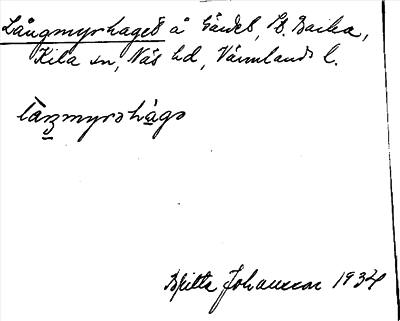 Långmyrhaget å Gärdet, St. Backa,
Kila sn, Näs hd, Värmlands l.
låŋmyrshàgə
Britta Johansson 1934